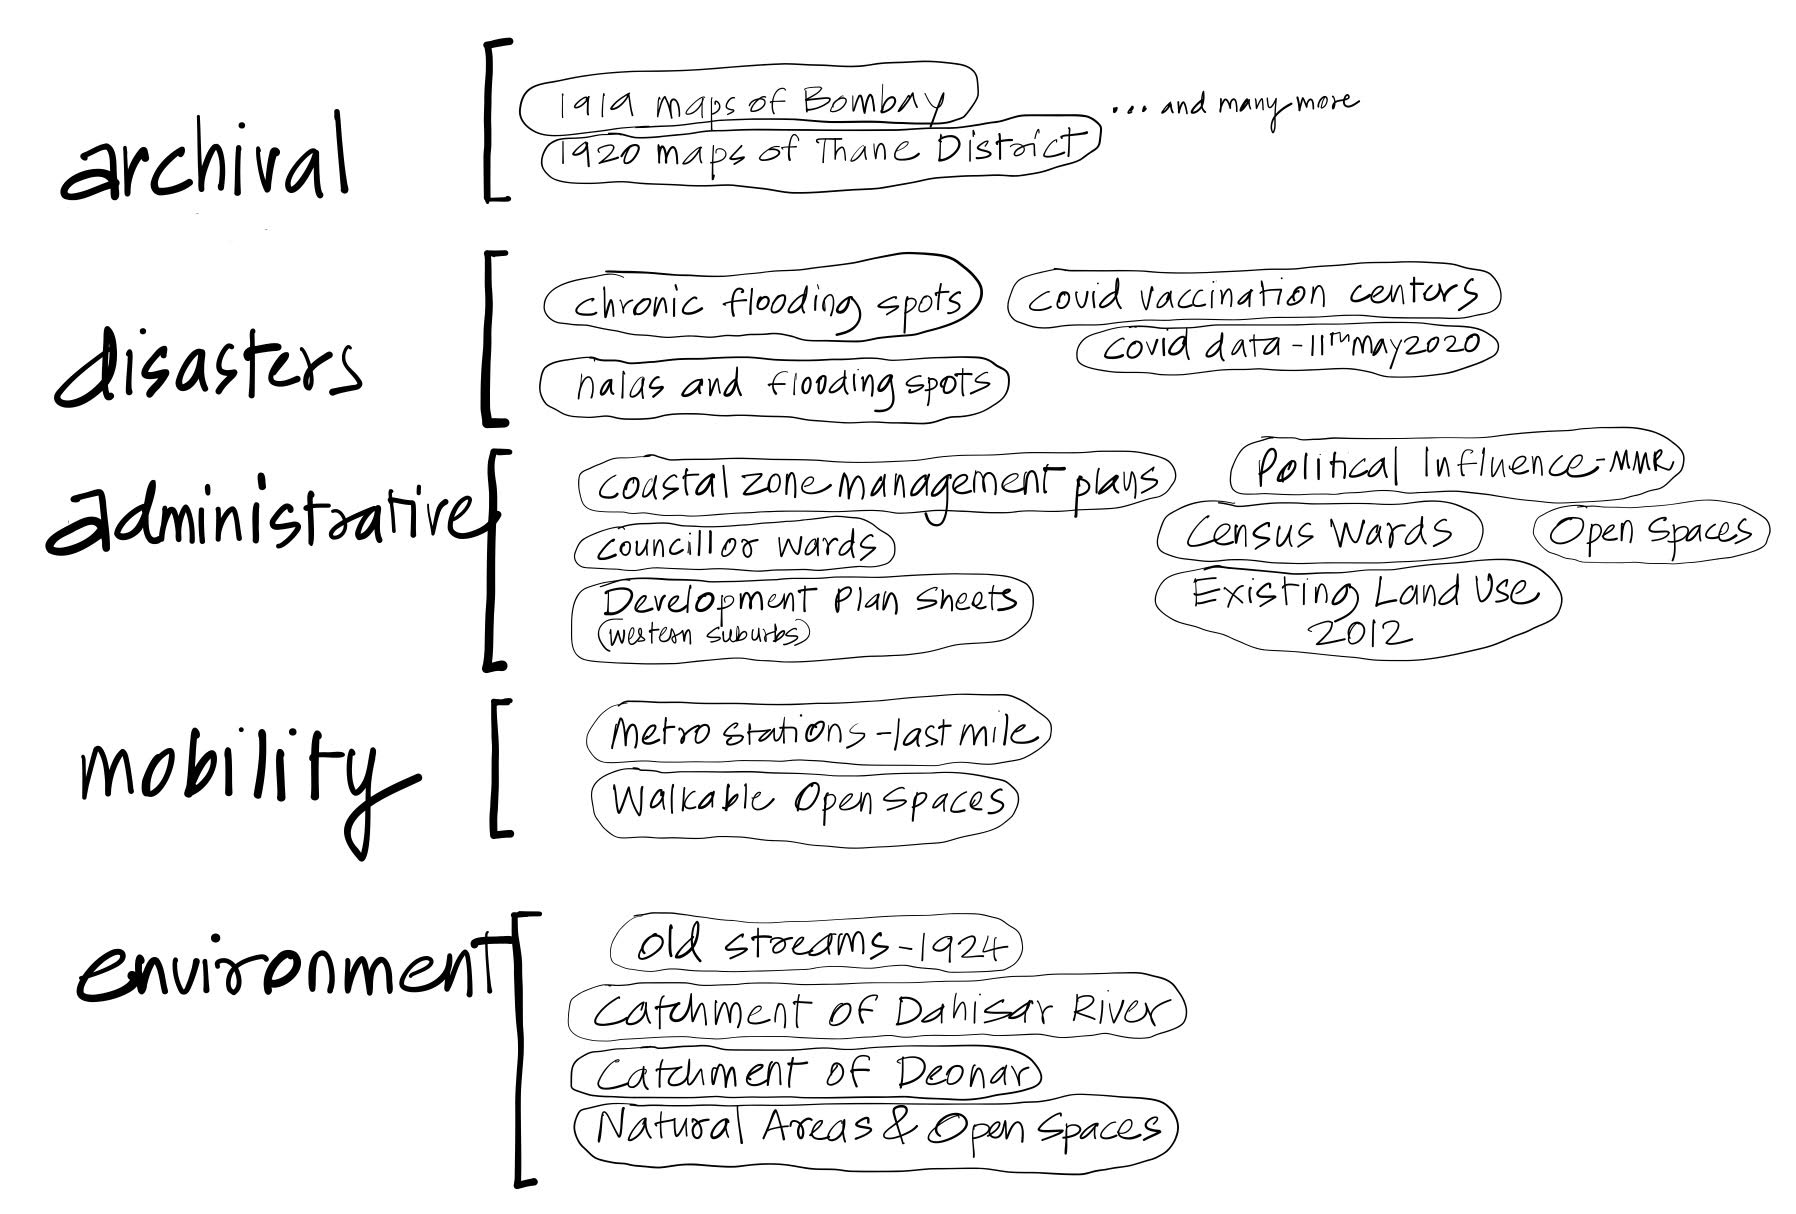 archival
1919 maps of Bombay
... and many more
1920 maps of Thane District
disasters
chronic flooding spots
covid vaccination centers
covid data - 11th May 2020
nalas and flooding spots
administrative
coastal zone management plans
Political Influence - MMR
councillor wards
Census Wards
Open Spaces
Development Plan Sheets
(western suburbs)
Existing Land Use
2012
mobility
Metro stations - last mile
Walkable Open Spaces
environment
old streams - 1924
Catchment of Dahisar River
Catchment of Deonar
Natural Areas & Open Spaces